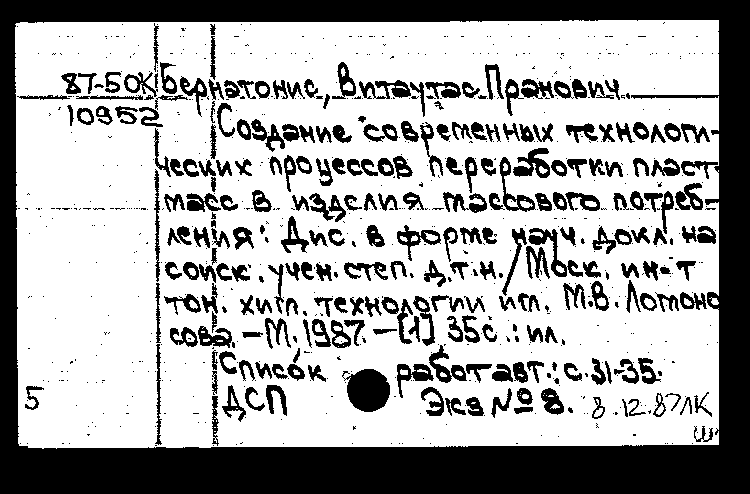 87-50К Бернатонис, Витаутас Пранович.
10952 Создание современных технологи-
ческих процессов переработки пласт-
масс в изделия массового потреб-
ления: Дис. в форме науч. докл. на
соиск. учен. степ. д.т.н. / Моск. ин-т
тон. хим. технологии им. М.В. Ломоно
сова. – М. 1987. – [1] 35с.: ил.
Список работ авт.: с. 31-35.
5 ДСП Экз № 8. 8.12.87ЛК